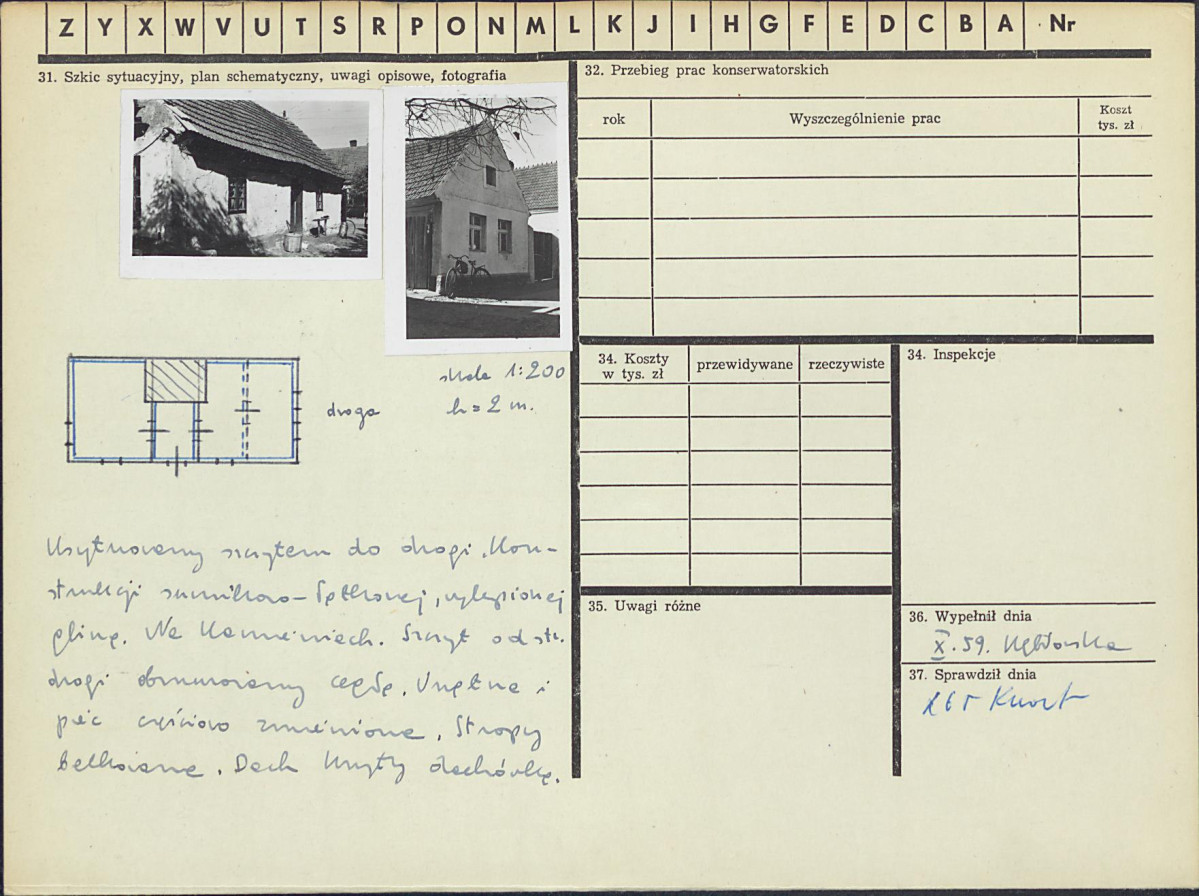 Z Y X W V U T S R P O N M L K J I H G F E D C B A Nr
31. Szkic sytuacyjny, plan schematyczny, uwagi opisowe, fotografia
skala 1:200
h = 2 m.
droga
Usytuowany szczytem do drogi. Kon-
strukcji sumikowo-łątkowej, wylepionej
gliną. Na kamieniach. Szczyt od str.
drogi obmurowany cegłą. Wnętrze i
piec częściowo zmienione. Stropy
belkowane. Dach kryty dachówką.
32. Przebieg prac konserwatorskich
rok
Wyszczególnienie prac
Koszt
tys. zł
34. Koszty
w tys. zł
przewidywane
rzeczywiste
34. Inspekcje
35. Uwagi różne
36. Wypełnił dnia
X.59.
37. Sprawdził dnia